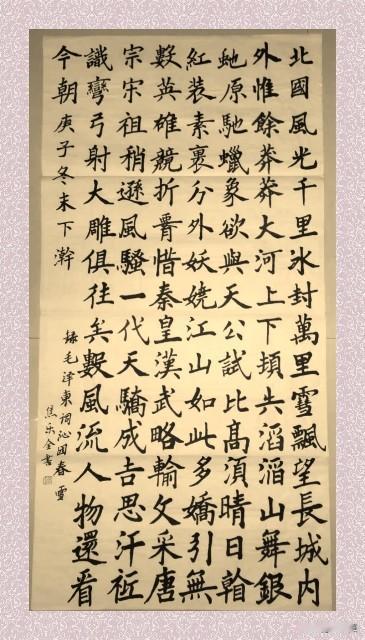 北國風光千里冰封萬里雪飄望長城内
外惟餘莽莽大河上下頓失滔滔山舞銀
虵原馳蠟象欲與天公試比高須晴日看
紅装素裹分外妖嬈江山如此多嬌引無
數英雄競折腰惜秦皇漢武略輸文采唐
宗宋祖稍遜風騷一代天驕成吉思汗祗
識彎弓射大雕俱往矣數風流人物還看
今朝庚子冬末下澣
錄毛泽東詞沁园春雪
焦乐全書